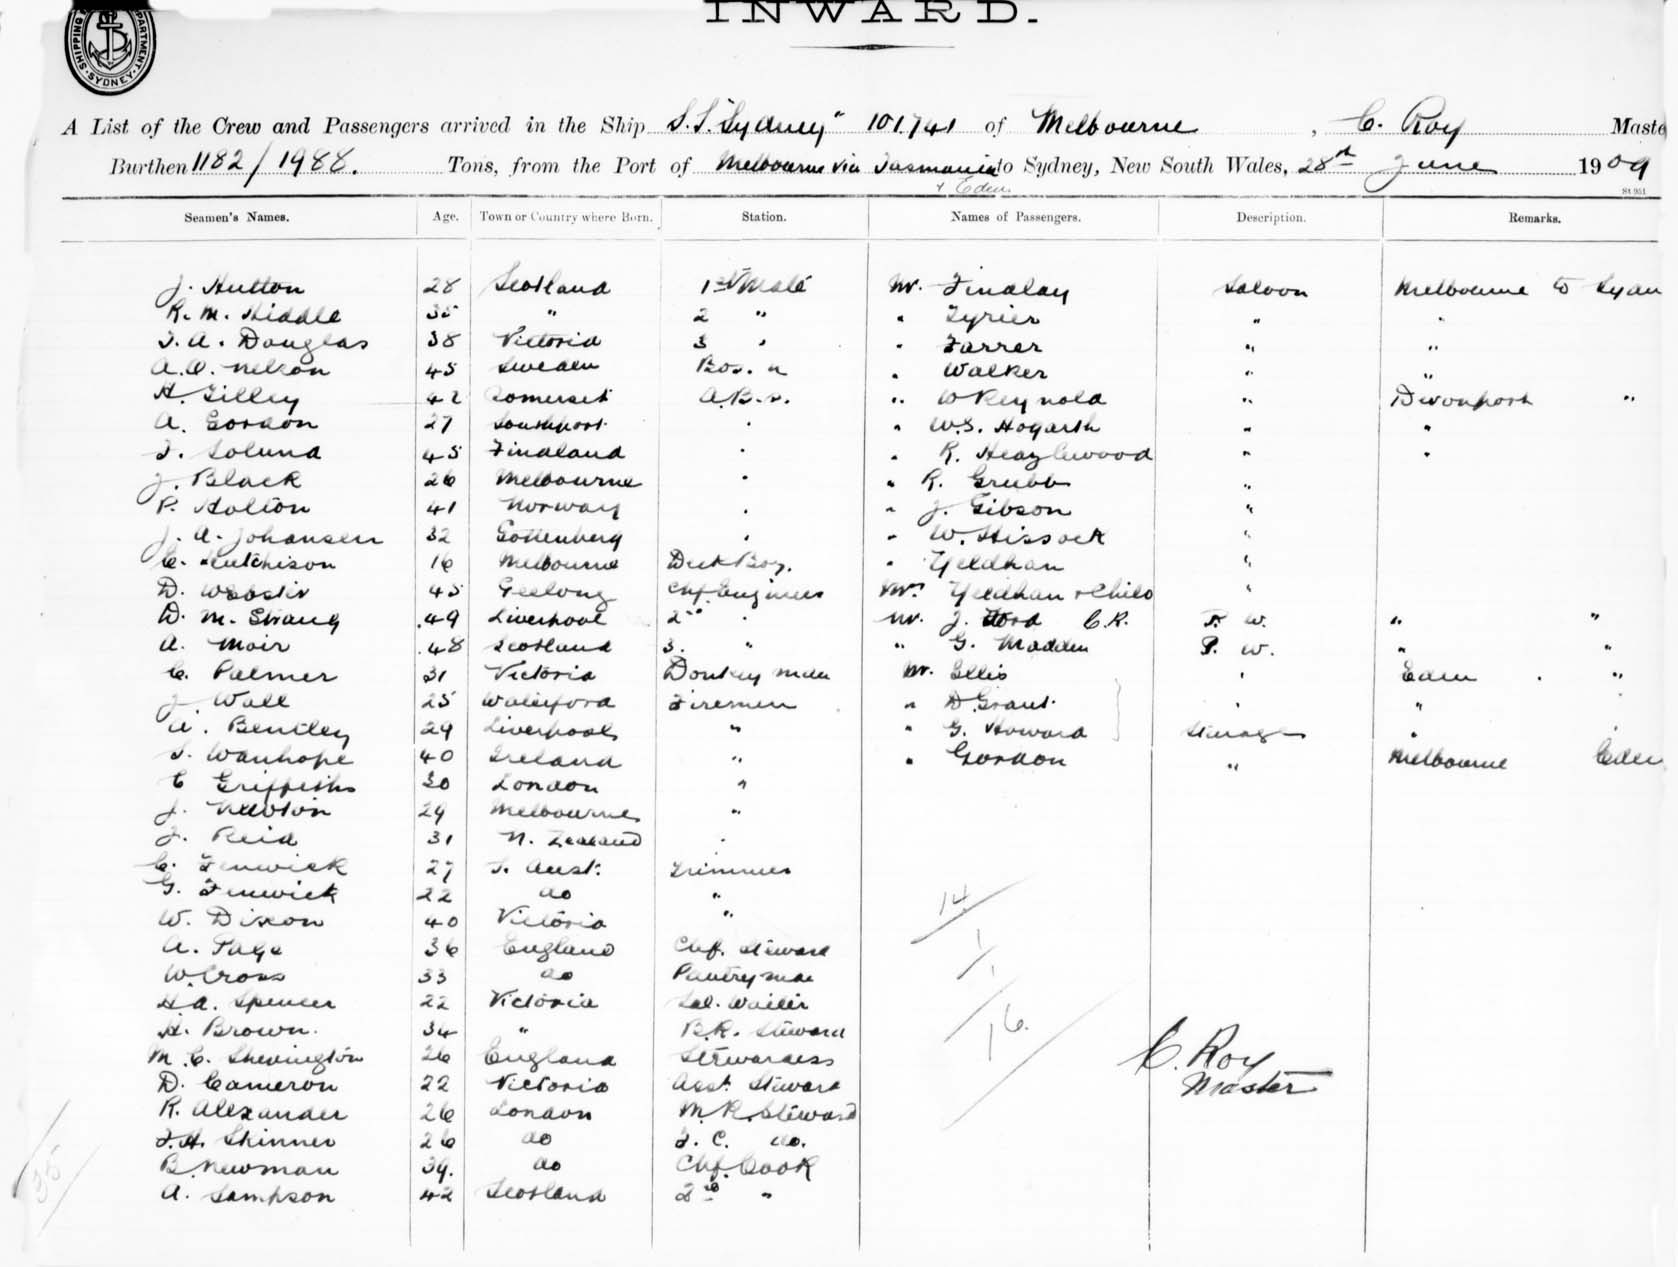 SHIPPING DEPARTMENT. SYDNEY.
INWARD.
A List of the Crew and Passengers arrived in the Ship S.S. "Sydney" 101741 of Melbourne, C. Roy Maste
Burthen 1182/1988. Tons, from the Port of Melbourne via Tasmania to Sydney, New South Wales, 28th June 1909
& Eden
St 951
Seamen's Names. Age. Town or Country where Born. Station. Names of Passengers. Description. Remarks.
J. Hutton 28 Scotland 1st Mate Mr. Findlay Saloon Melbourne to Sydn
R. M. Kiddle 35 " 2 " " Tyrier " "
J. A. Douglas 38 Victoria 3 " " Farrer " "
A. O. Nelson 45 Sweden Bos. n " Walker " "
H. Gilley 42 Somerset A.B.s. " W Reynolds " Devonport "
A. Gordon 27 Southport " " W.S. Hogarth " "
J. Solund 45 Finaland " " R. Heazlewood " "
J. Black 26 Melbourne " " R. Grubb "
P. Holton 41 Norway " " J. Gibson "
J. A. Johansen 32 Gottenberg " " W. Hissock "
C. Hutchison 16 Melbourne Deck Boy. " Yeldhan "
D. Webster 45 Geelong Chf. Engineer Mrs Yeldhan + Child "
D. M. Strang 49 Liverpool 2nd " Mr. J. Ford C.R. P. W. " "
A. Moir 48 Scotland 3. " " G. Madden P. W. " "
C. Palmer 31 Victoria Donkey man Mr. Ellis " Eden "
J. Wall 25 Waterford Firemen " D Grant " " "
A. Bentley 29 Liverpool " " G. Howard Steerage " "
S. Wanhope 40 Ireland " " Gordon " Melbourne Eden
C Griffiths 30 London "
J. Newton 29 Melbourne "
J. Reid 31 N. Zealand "
C. Fenwick 27 S. Aust. Trimmers
G. Fenwick 22 do "
W. Dixon 40 Victoria "
A. Page 36 England Chf. Steward
W. Cross 33 do Pantryman
H. A. Spencer 22 Victoria Sal. Waiter
H. Brown. 34 " B.R. Steward
M. C. Shevington 26 England Stewardess
D. Cameron 22 Victoria Asst. Steward
R. Alexander 26 London M. R. Steward
J. H. Skinner 26 do F. C. do.
B. Newman 39. do Chf. Cook
A. Sampson 42 Scotland 2nd "
14
1
16.
C. Roy
Master
35